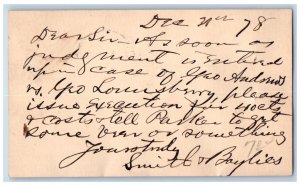 Dec 21st 78
Dear Sir As soon as
judgment is entered
upon case of Geo Andrews
vs. Geo Lounsberry, please
issue execution for
& costs & tell Parker to get
some over or something
Yours truly
Smith & Baylies